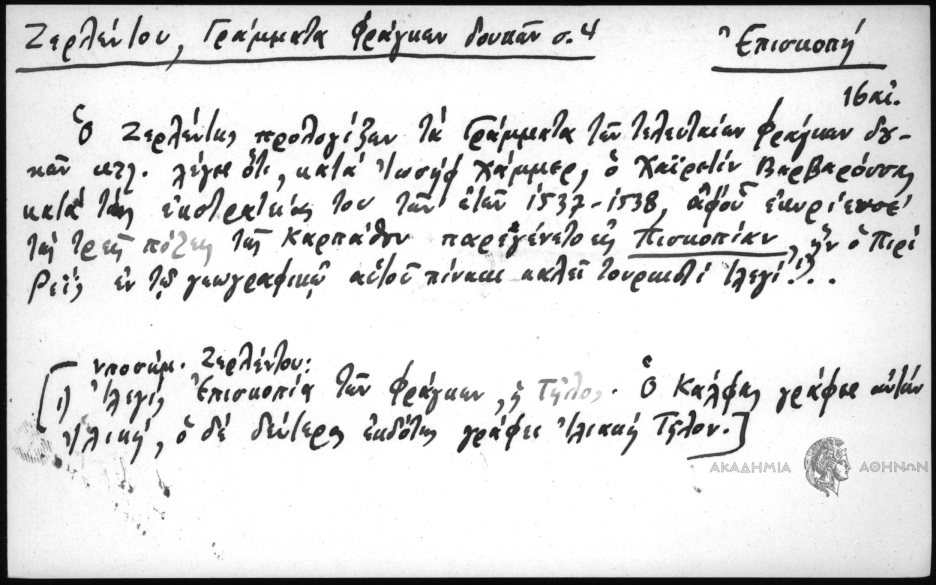 Ζερλέντου, Γράμματα Φράγκων δουκῶν σ. 4
Ἐπισκοπή
16 αἰ.
Ὁ Ζερλέντης προλογίζων τὰ Γράμματα τῶν τελευταίων Φράγκων δου-
κῶν κτλ. λέγει ὅτι, κατὰ Ἰωσὴφ Χάμμερ, ὁ Χαϊρεδίν Βαρβαρόσσας
κατὰ τὰς ἐκστρατείας του τῶν ἐτῶν 1537-1538, ἀφοῦ ἐκυρίευσε
τὰς τρεῖς πόλεις τῆς Καρπάθου παρεγένετο εἰς Πισκοπίαν, ἣν ὁ Πιρί
Ρεΐς ἐν τῷ γεωγραφικῷ αὐτοῦ πίνακι καλεῖ τουρκιστί Ἰλεγί¹⁾...
[ὑποσημ. Ζερλέντου:
1) Ἰλεγί, Ἐπισκοπία τῶν Φράγκων, ἡ Τῆλος. Ὁ Κάλφας γράφει αὐτὴν
Ἰλική, ὁ δὲ δεύτερος ἐκδότης γράφει Ἰλιακὴ Τῆλον.]
ΑΚΑΔΗΜΙΑ ΑΘΗΝΩΝ